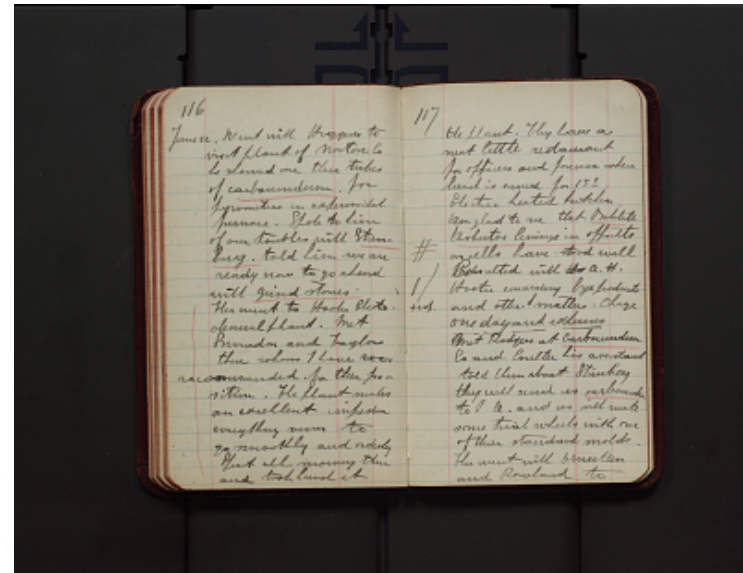 116
Went with Higgins to
visit plant of Norton Co
he showed me three tubes
of carborundum for
pyrometers in experimental
furnace. Spoke to him
of our troubles with Stein
berg. told him we are
ready now to go ahead
with grind stones.
then went to Hooker Electro
chemical plant. Met
and Taylor
three whom I have
recommended for their po
sition. The plant makes
an excellent impression
everything seems to
go smoothly and orderly
Spent all morning there
and took lunch at
117
the plant. They have a
neat little restaurant
for officers and foremen where
lunch is served for 15¢
Electric heated kitchen
am glad to see that Bakelite
Asbestos linings in
on cells have stood well
#
Consulted with A. H.
Hooker concerning byeproducts
and other matters. Charge
one day and expenses
Met at Carborundum
Co and Coulter his assistant
told them about Steinberg
they will send us carborundum
to P. A. and we will make
some trial wheels with one
of their standard molds.
then went with
and Rowland to